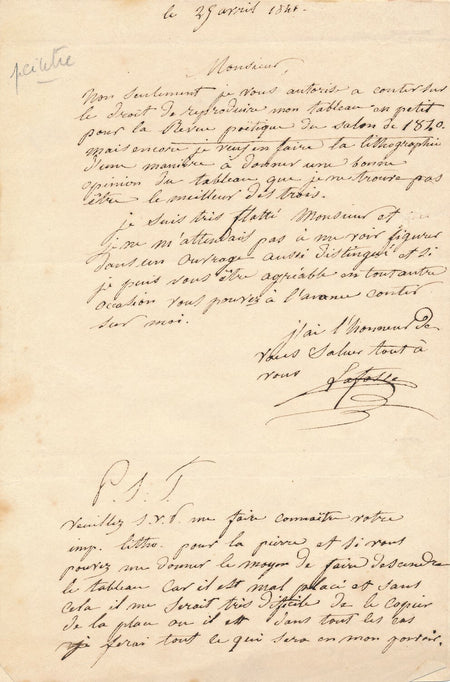 le 25 avril 1840.
peintre
Monsieur,
Non seulement je vous autorise a conter sur
le droit de reproduire mon tableau en petit
pour la Revue poëtique du salon de 1840.
mais encore je veux en faire la lithographie
d'une manière à donner une bonne
opinion du tableau que je ne trouve pas
être le meilleur des trois.
je suis très flatté Monsieur et
je ne m'attendais pas à me voir figurer
dans un ouvrage aussi distingué et si
je puis vous être agréable en tout autre
occasion vous pouvez à l'avance conter
sur moi.
j'ai l'honneur de
vous saluer tout à
vous Lafosse
P. S. T
veuillez s.v.p. me faire connaître votre
imp. litho. pour la pierre et si vous
pouvez me donner le moyen de faire descendre
le tableau car il est mal placé et sans
cela il me serait très difficile de le copier
de la place ou il est dans tout les cas
je ferai tout le qui sera en mon pouvoir.